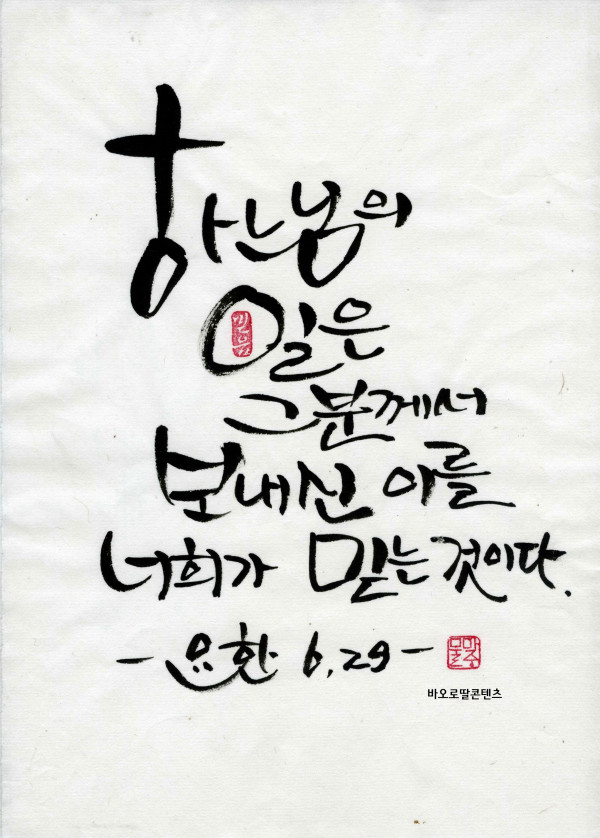 하느님의
일은
그분께서
보내신 이를
너희가 믿는 것이다.
- 요한 6,29 -
바오로딸콘텐츠